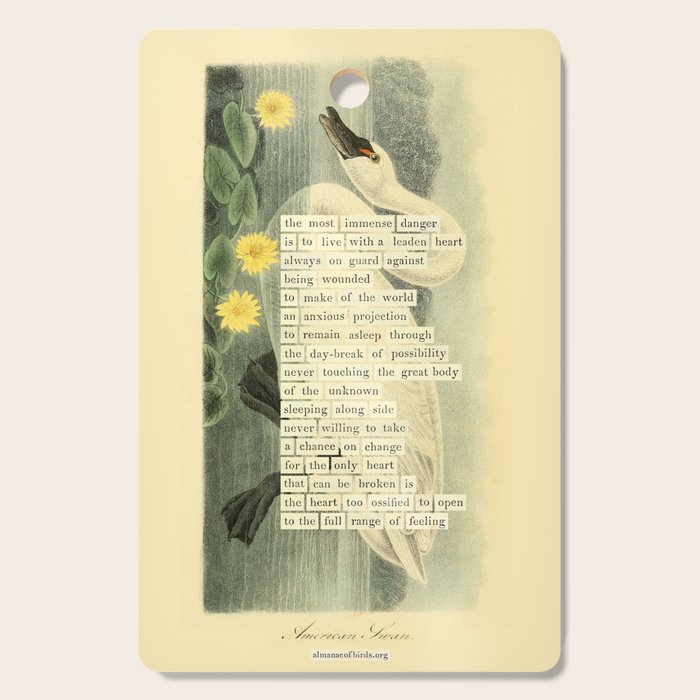 the most immense danger
is to live with a leaden heart
always on guard against
being wounded
to make of the world
an anxious projection
to remain asleep through
the day-break of possibility
never touching the great body
of the unknown
sleeping along side
never willing to take
a chance on change
for the only heart
that can be broken is
the heart too ossified to open
to the full range of feeling
American Swan
almanacofbirds.org